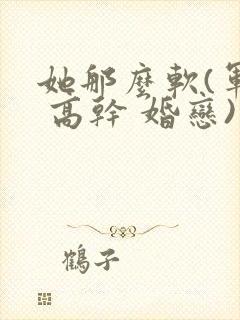 她那麼軟(軍
高幹 婚戀)
鶴子